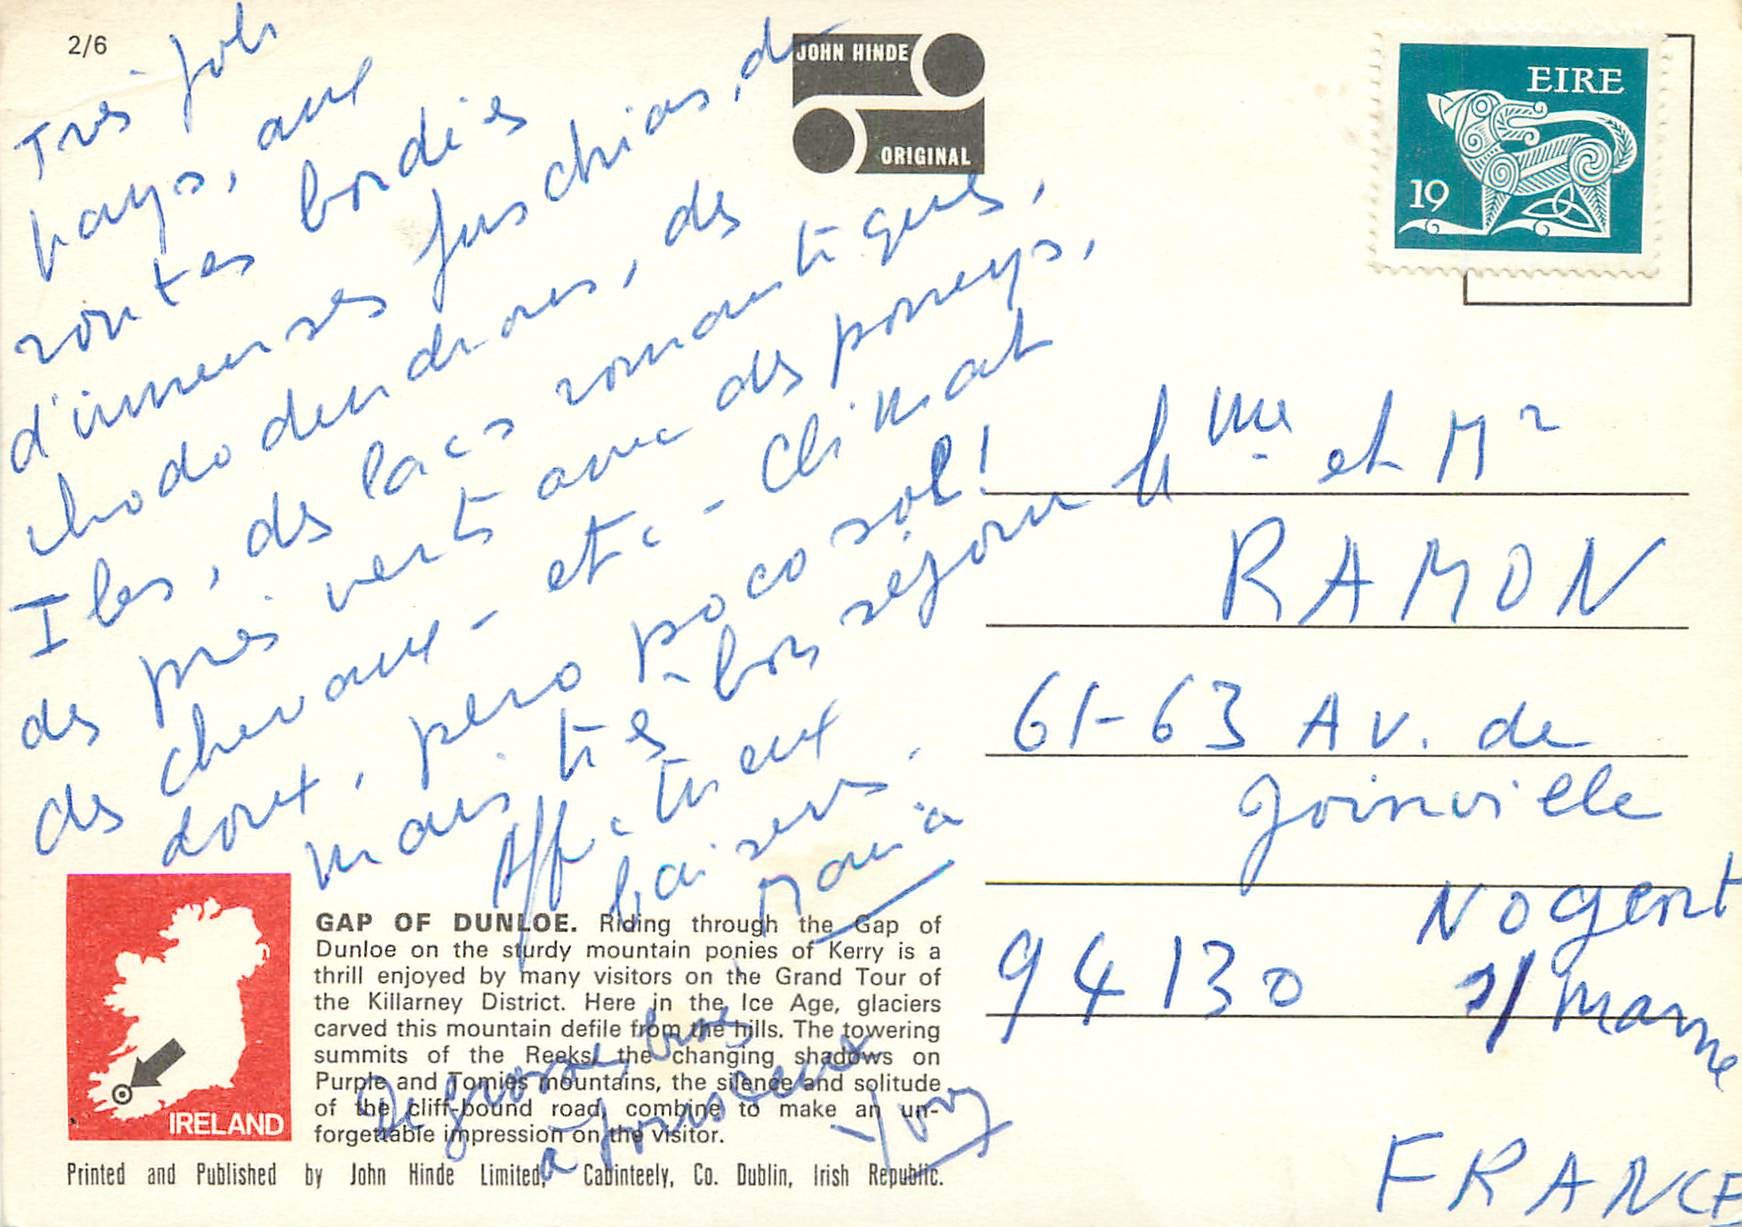 2/6
Très joli
pays, aux
routes bordées
d'immenses fuschias, de
rhododendrons, des
Iles, des lacs romantiques,
des prés verts avec des poneys,
des chevaux - etc - Climat
doux, pero poco sol!
mais très bon séjour
Affectueux
baisers,
Maria
De grosses bises
à tous deux
JOHN HINDE
ORIGINAL
EIRE
19
Mme et Mr
RAMON
61-63 Av. de
Joinville
Nogent
94130 s/ Marne
FRANCE
IRELAND
GAP OF DUNLOE. Riding through the Gap of
Dunloe on the sturdy mountain ponies of Kerry is a
thrill enjoyed by many visitors on the Grand Tour of
the Killarney District. Here in the Ice Age, glaciers
carved this mountain defile from the hills. The towering
summits of the Reeks, the changing shadows on
Purple and Tomies mountains, the silence and solitude
of the cliff-bound road, combine to make an un-
forgettable impression on the visitor.
Printed and Published by John Hinde Limited, Cabinteely, Co. Dublin, Irish Republic.